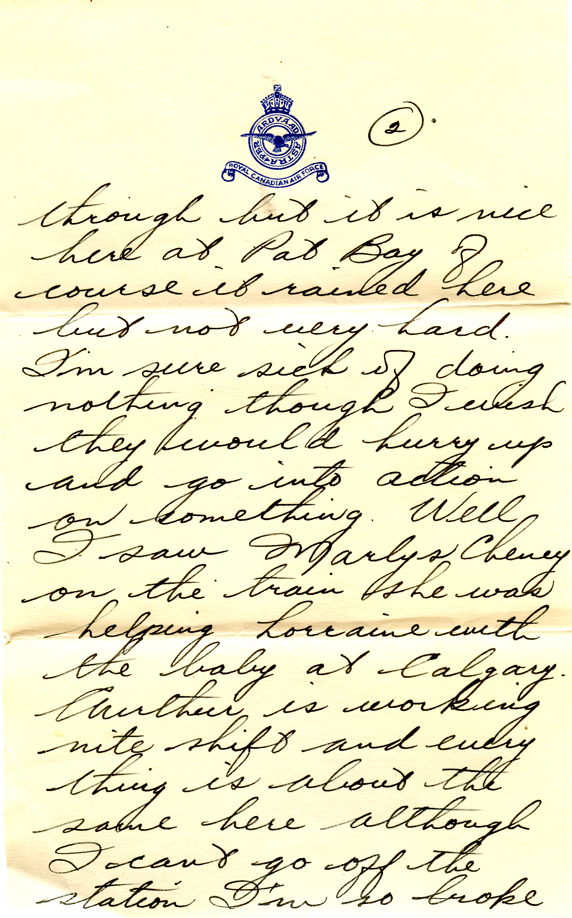 2
PER ARDVA AD ASTRA
ROYAL CANADIAN AIR FORCE
through but it is nice
here at Pat Bay of
course it rained here
but not very hard.
I'm sure sick of doing
nothing though I wish
they would hurry up
and go into action
on something. Well
I saw Marlys Cheney
on the train she was
helping Lorraine with
the baby at Calgary.
is working
nite shift and every
thing is about the
same here although
I can't go off the
station I'm so broke